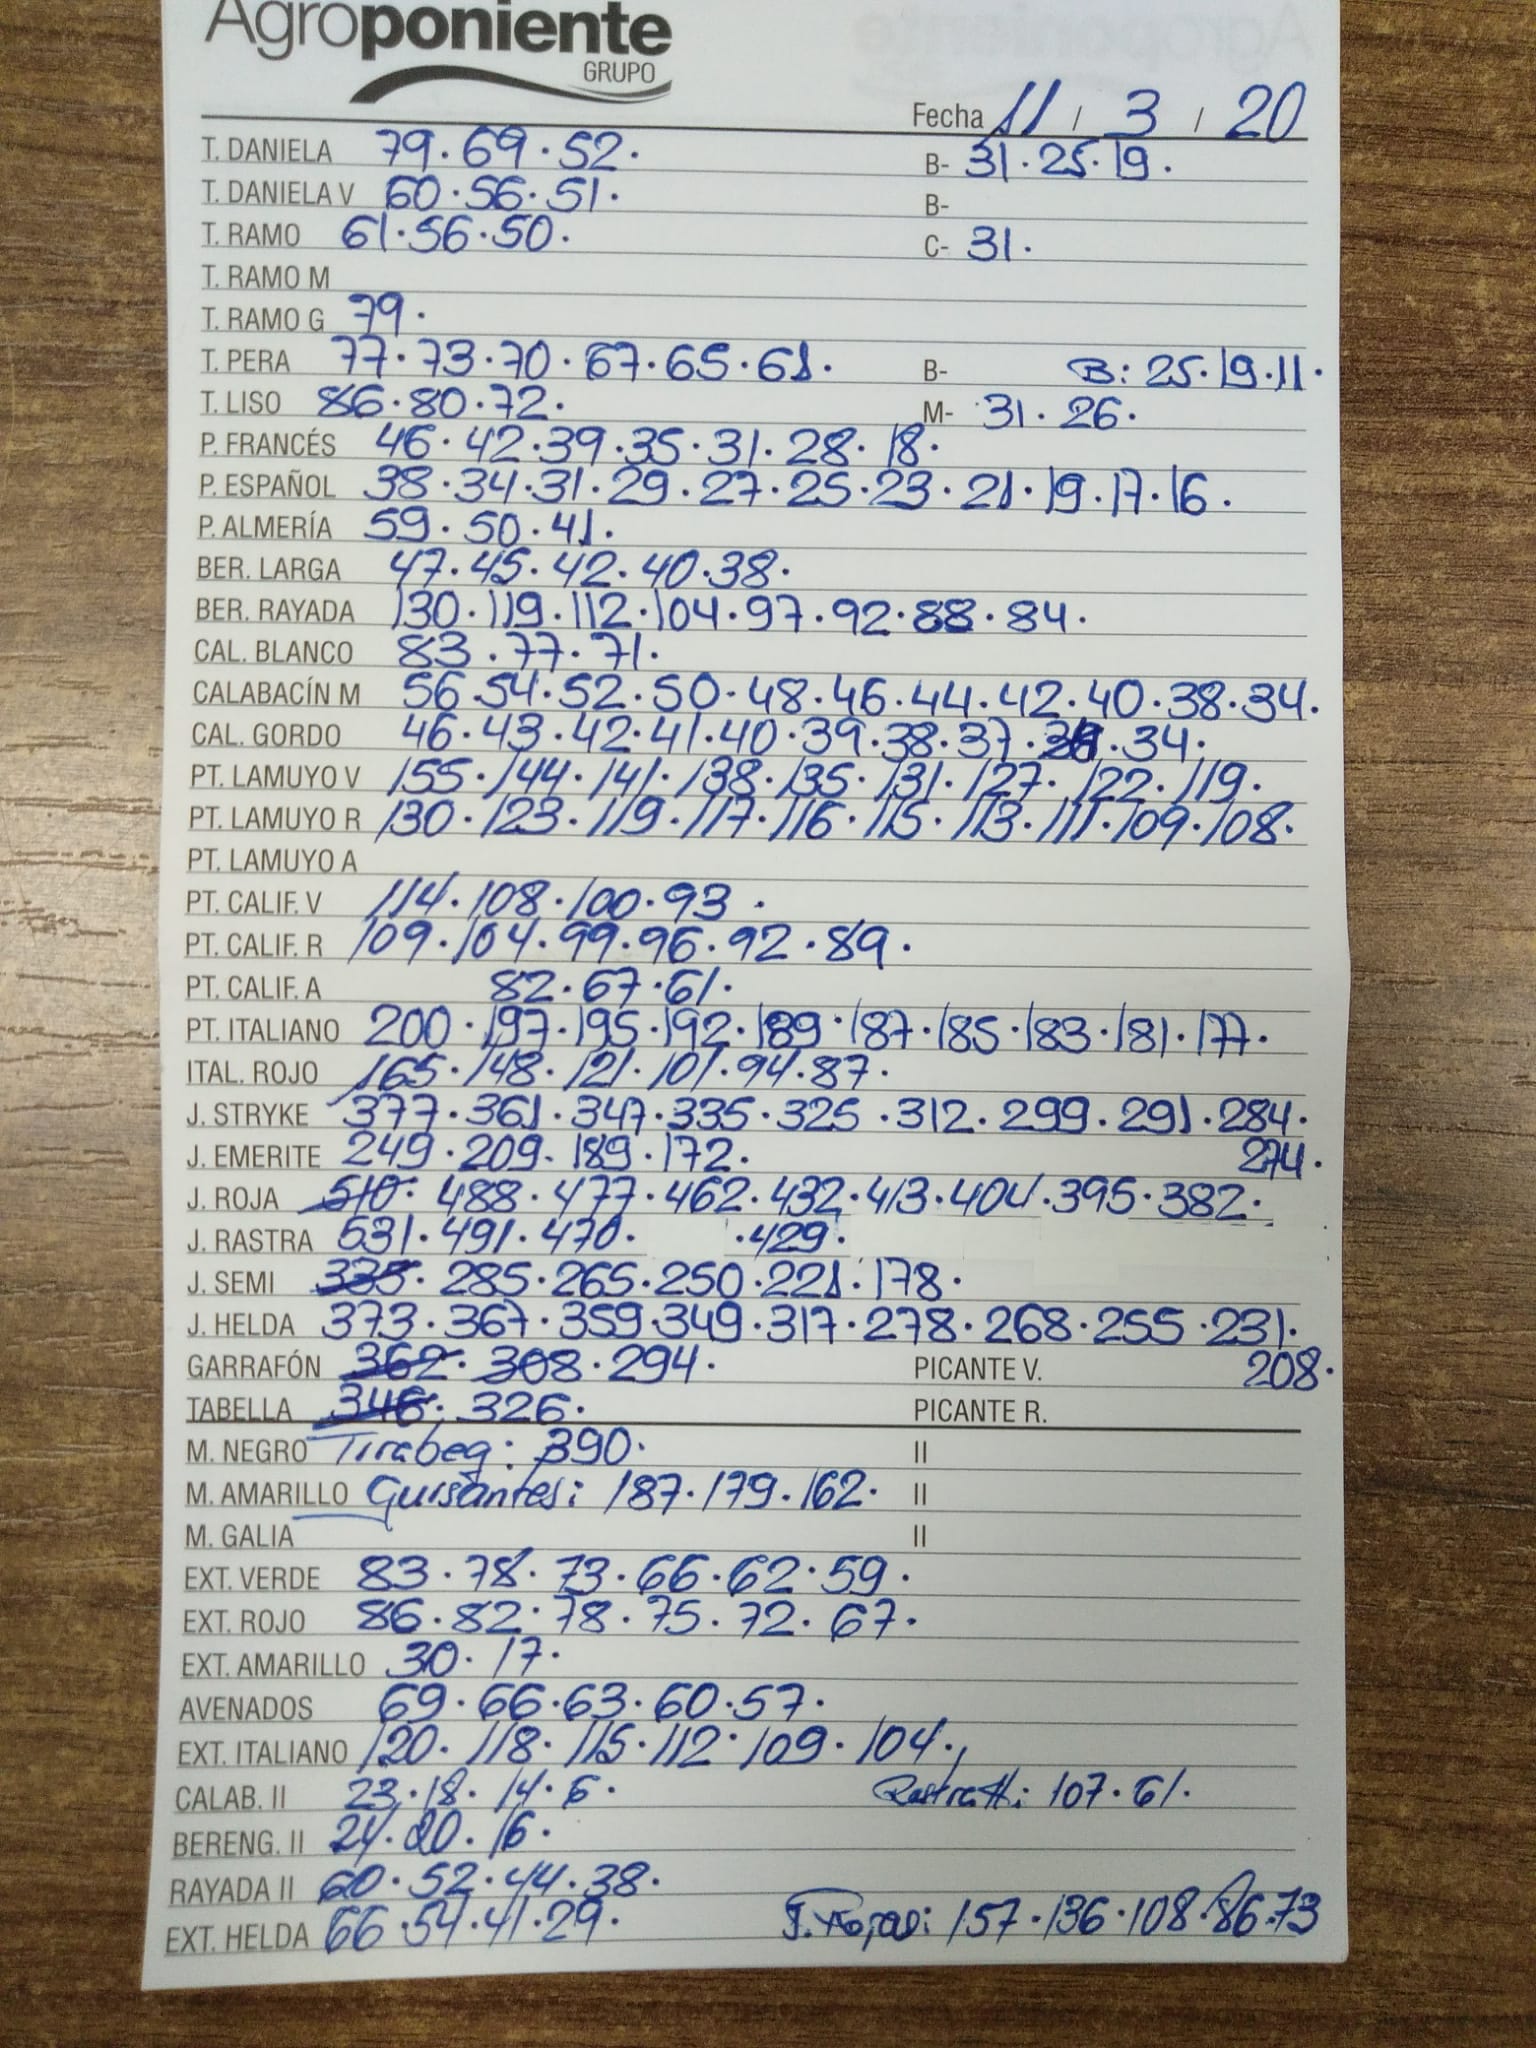 Agroponiente
GRUPO
Fecha 11 / 3 / 20
T. DANIELA 79 · 69 · 52 · B- 31 · 25 · 19 ·
T. DANIELA V 60 · 56 · 51 · B-
T. RAMO 61 · 56 · 50 · C- 31 ·
T. RAMO M
T. RAMO G 79 ·
T. PERA 77 · 73 · 70 · 67 · 65 · 61 · B- B: 25 · 19 · 11 ·
T. LISO 86 · 80 · 72 · M- 31 · 26 ·
P. FRANCÉS 46 · 42 · 39 · 35 · 31 · 28 · 18 ·
P. ESPAÑOL 38 · 34 · 31 · 29 · 27 · 25 · 23 · 21 · 19 · 17 · 16 ·
P. ALMERÍA 59 · 50 · 41 ·
BER. LARGA 47 · 45 · 42 · 40 · 38 ·
BER. RAYADA 130 · 119 · 112 · 104 · 97 · 92 · 88 · 84 ·
CAL. BLANCO 83 · 77 · 71 ·
CALABACÍN M 56 · 54 · 52 · 50 · 48 · 46 · 44 · 42 · 40 · 38 · 34 ·
CAL. GORDO 46 · 43 · 42 · 41 · 40 · 39 · 38 · 37 · · 34 ·
PT. LAMUYO V 155 · 144 · 141 · 138 · 135 · 131 · 127 · 122 · 119 ·
PT. LAMUYO R 130 · 123 · 119 · 117 · 116 · 115 · 113 · 111 · 109 · 108 ·
PT. LAMUYO A
PT. CALIF. V 114 · 108 · 100 · 93 ·
PT. CALIF. R 109 · 104 · 99 · 96 · 92 · 89 ·
PT. CALIF. A 82 · 67 · 61 ·
PT. ITALIANO 200 · 197 · 195 · 192 · 189 · 187 · 185 · 183 · 181 · 177 ·
ITAL. ROJO 165 · 148 · 121 · 101 · 94 · 87 ·
J. STRYKE 377 · 361 · 347 · 335 · 325 · 312 · 299 · 291 · 284 ·
J. EMERITE 249 · 209 · 189 · 172 · 274 ·
J. ROJA 510 · 488 · 477 · 462 · 432 · 413 · 404 · 395 · 382 ·
J. RASTRA 531 · 491 · 470 · · 429 ·
J. SEMI 335 · 285 · 265 · 250 · 221 · 178 ·
J. HELDA 373 · 367 · 359 · 349 · 317 · 278 · 268 · 255 · 231 ·
GARRAFÓN 362 · 308 · 294 · PICANTE V. 208 ·
TABELLA 346 · 326 · PICANTE R.
M. NEGRO Tirabeq: 390 · II
M. AMARILLO Guisantes: 187 · 179 · 162 · II
M. GALIA II
EXT. VERDE 83 · 78 · 73 · 66 · 62 · 59 ·
EXT. ROJO 86 · 82 · 78 · 75 · 72 · 67 ·
EXT. AMARILLO 30 · 17 ·
AVENADOS 69 · 66 · 63 · 60 · 57 ·
EXT. ITALIANO 120 · 118 · 115 · 112 · 109 · 104 ·
CALAB. II 23 · 18 · 14 · 6 · Rastra II: 107 · 61 ·
BERENG. II 24 · 20 · 16 ·
RAYADA II 60 · 52 · 44 · 38 ·
EXT. HELDA 66 · 54 · 41 · 29 · 157 · 136 · 108 · 86 · 73